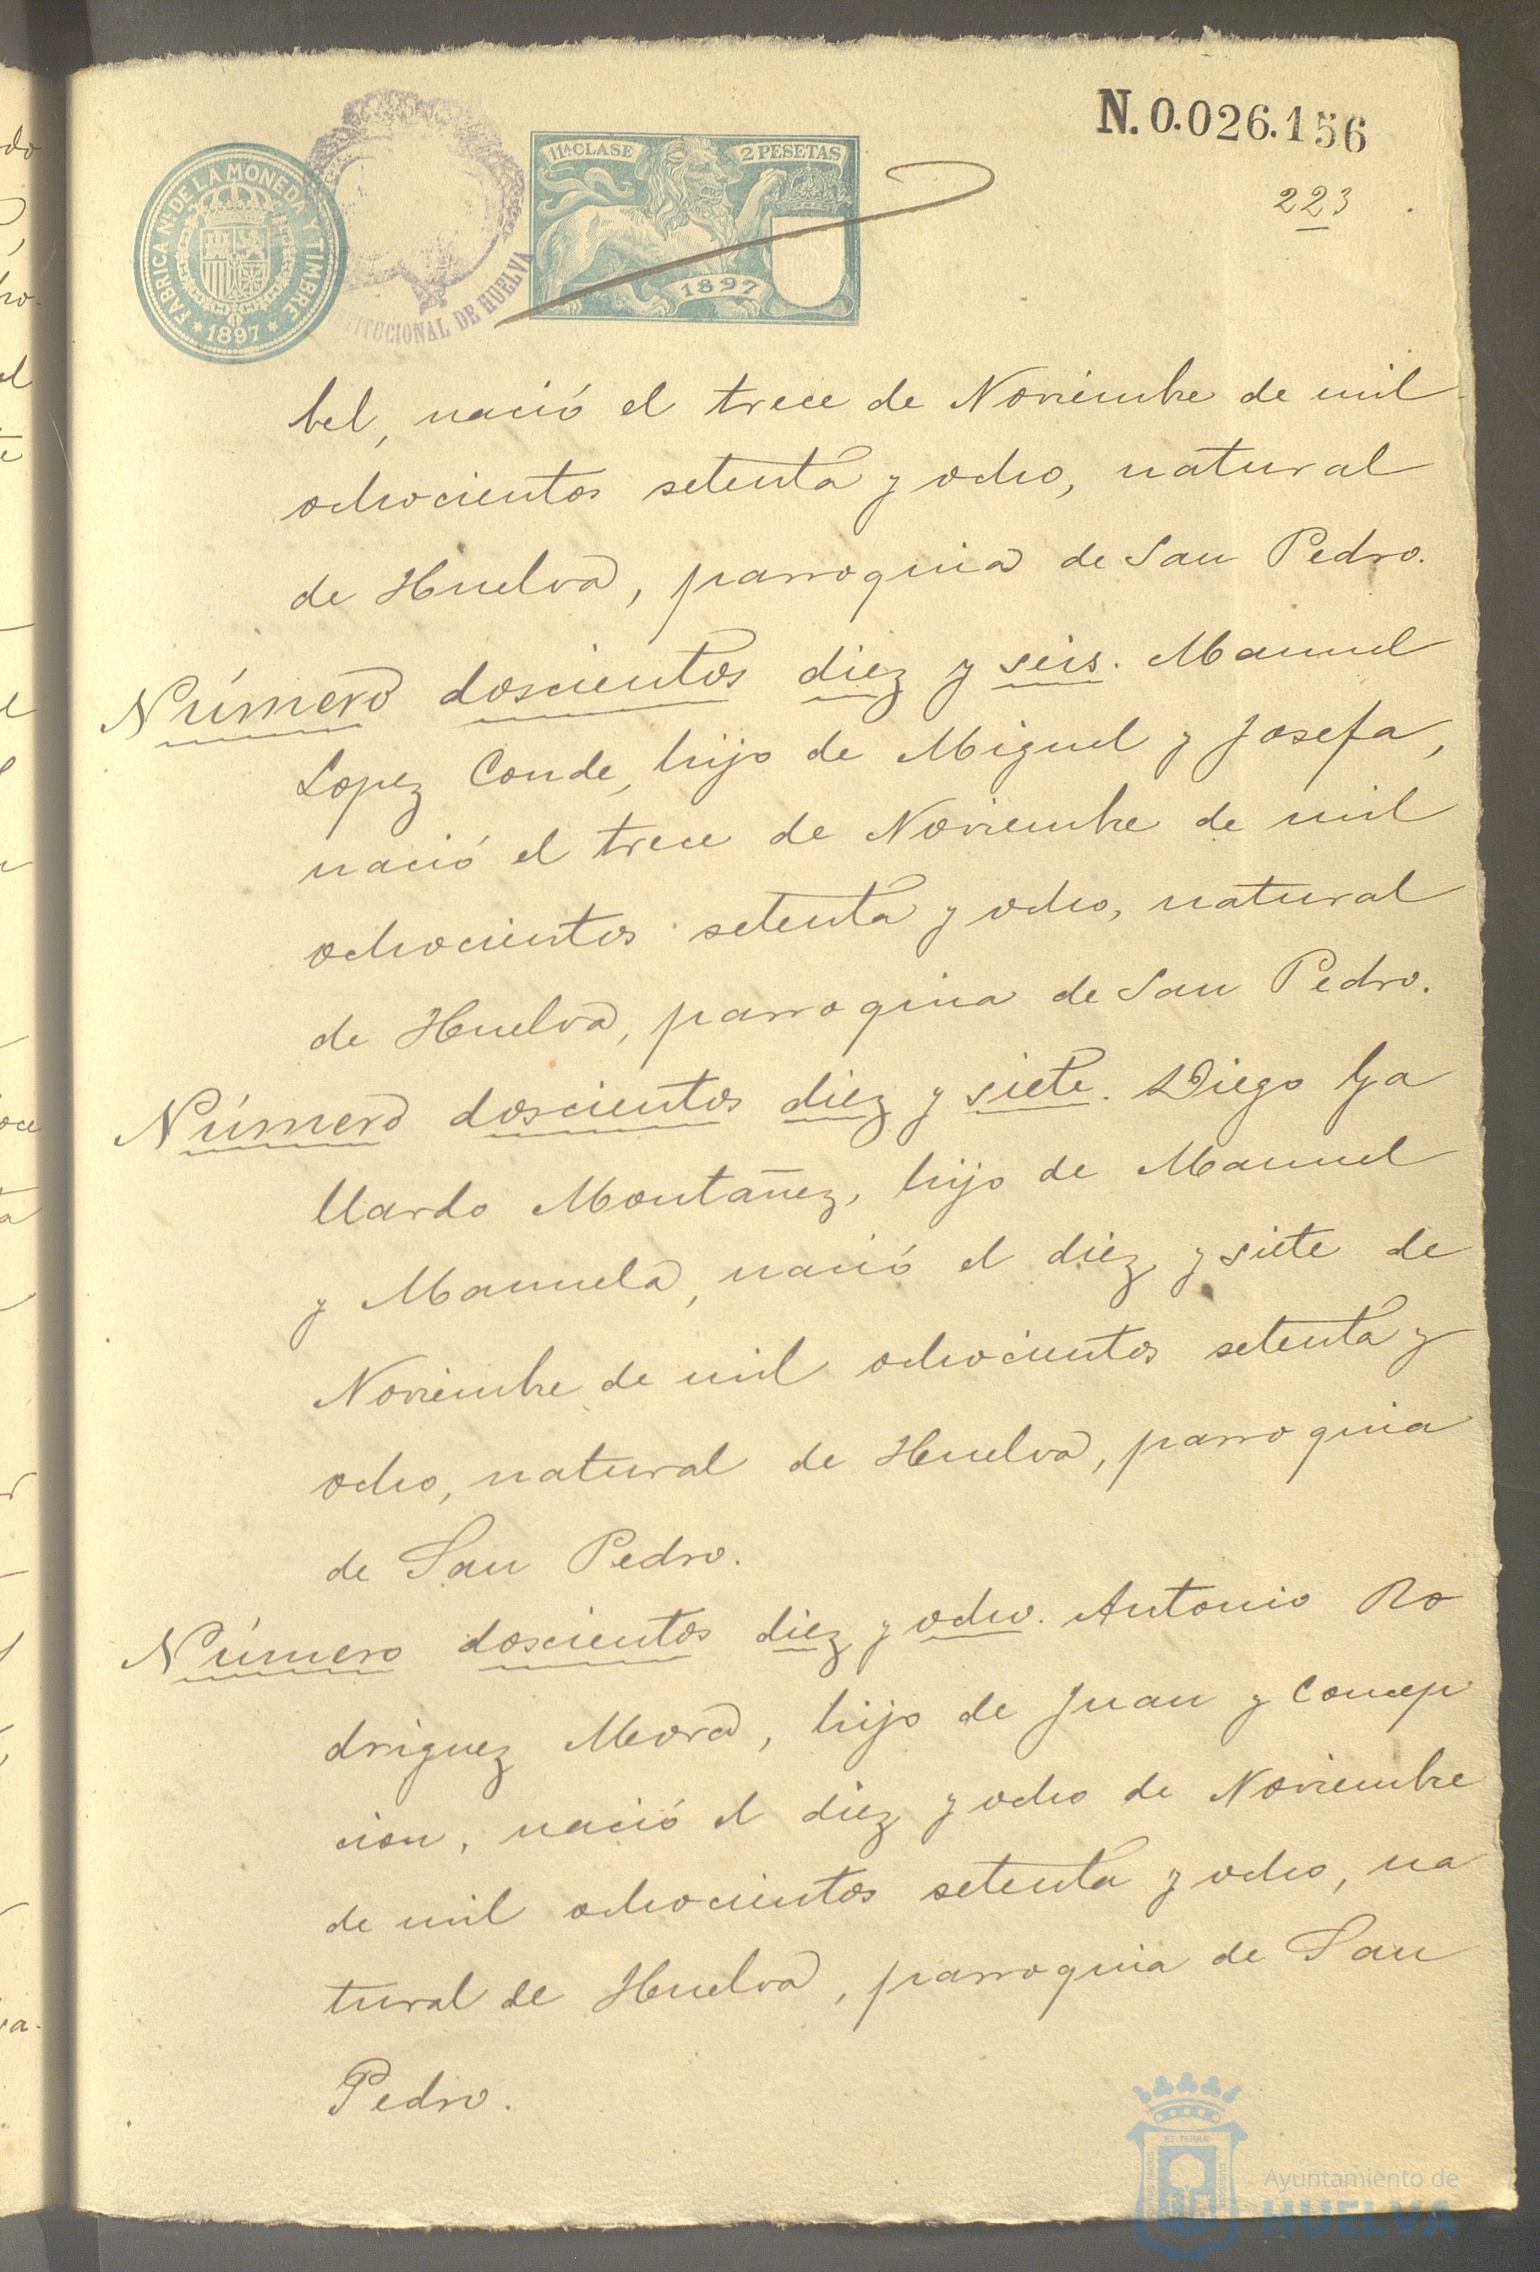 N. 0.026.156
223
FABRICA N. DE LA MONEDA Y TIMBRE
* 1897 *
TITUCIONAL DE HUELVA
11ª CLASE
2 PESETAS
1897
bel, nació el trece de Noviembre de mil
ochocientos setenta y ocho, natural
de Huelva, parroquia de San Pedro.
Número doscientos diez y seis. Manuel
Lopez Conde, hijo de Miguel y Josefa,
nació el trece de Noviembre de mil
ochocientos setenta y ocho, natural
de Huelva, parroquia de San Pedro.
Número doscientos diez y siete. Diego Ga
llardo Montañez, hijo de Manuel
y Manuela, nació el diez y siete de
Noviembre de mil ochocientos setenta y
ocho, natural de Huelva, parroquia
de San Pedro.
Número doscientos diez y ocho. Antonio Ro
driguez Mora, hijo de Juan y Concep
cion, nació el diez y ocho de Noviembre
de mil ochocientos setenta y ocho, na
tural de Huelva, parroquia de San
Pedro.
Ayuntamiento de
HUELVA